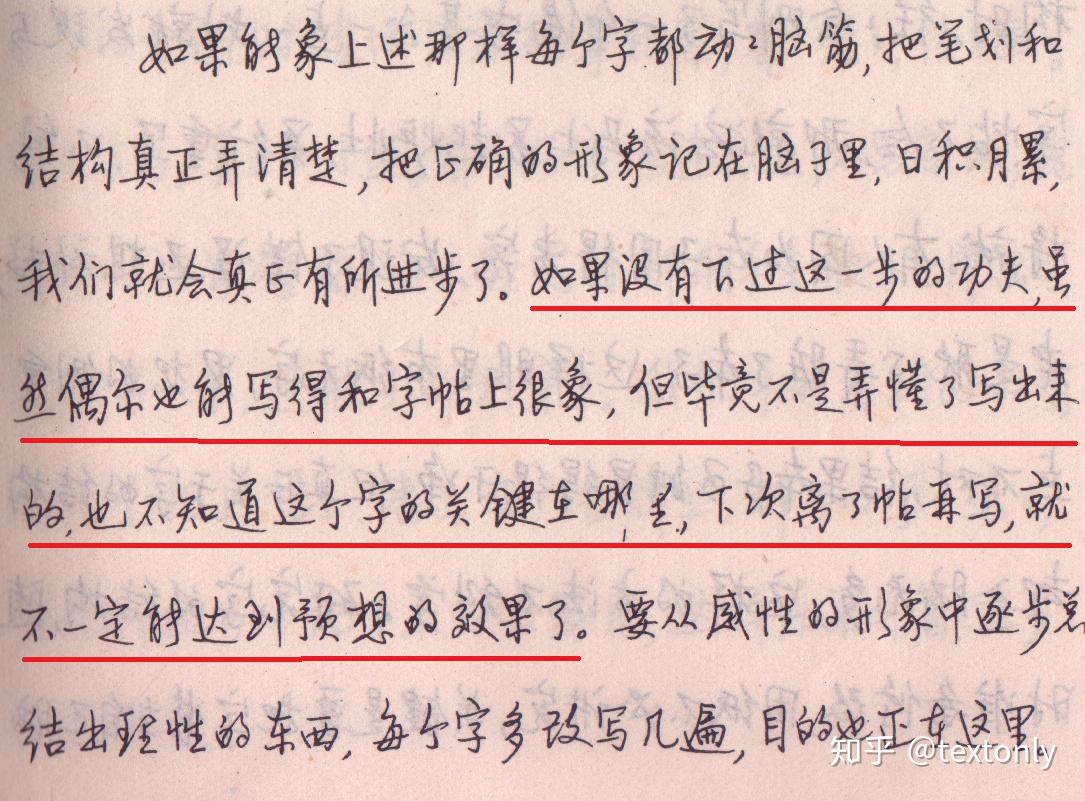 如果能象上述那样每个字都动々脑筋,把笔划和
结构真正弄清楚,把正确的形象记在脑子里,日积月累,
我们就会真正有所进步了。如果没有下过这一步的功夫,虽
然偶尔也能写得和字帖上很象,但毕竟不是弄懂了写出来
的,也不知道这个字的关键在哪里,下次离了帖再写,就
不一定能达到预想的效果了。要从感性的形象中逐步总
结出理性的东西,每个字多改写几遍,目的也正在这里。
知乎 @textonly